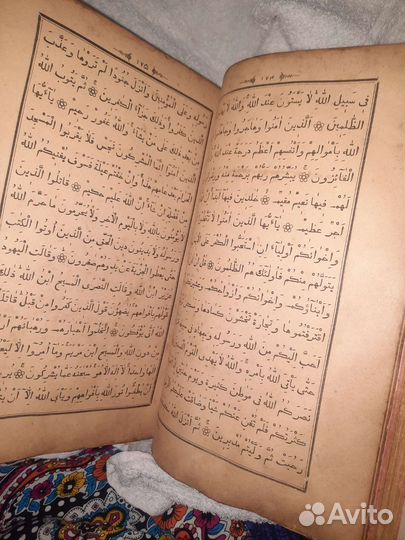 ١٧٤
فى سبيل الله لا يستون عند الله والله لا
الظلمين ۞ الذين امنوا وهاجروا وجاهدوا
الله باموالهم وانفسهم اعظم درجة عند الله
الفائزون ۞ يبشرهم ربهم برحمة منه و
لهم فيها نعيم مقيم ۞ خلدين فيها ابدا
اجر عظيم ۞ يايها الذين امنوا لا
واخوانكم اولياء ان استحبوا الكفر على
يتولهم منكم فاولئك هم الظلمون ۞ قل ان
وابناؤكم واخوانكم وازواجكم وعشيرتكم
اقترفتموها وتجارة تخشون كسادها ومسكن
احب اليكم من الله ورسوله وجهاد فى
حتى ياتى الله بامره والله لا يهدى القوم
نصركم الله فى مواطن كثيرة ويوم حنين
كثرتكم فلم تغن عنكم شيئا وضاقت عليكم
رحبت ثم وليتم مدبرين ۞ ثم انزل الله
١٧٥
رسوله وعلى المؤمنين وانزل جنودا لم تروها وعذب
كفروا وذلك جزاء الكفرين ۞ ثم يتوب الله
بعد ذلك على من يشاء والله غفور رحيم ۞ يايها
امنوا انما المشركون نجس فلا يقربوا المسجد
الحرام بعد عامهم هذا وان خفتم عيلة فسوف يغنيكم الله
فضله ان شاء ان الله عليم حكيم ۞ قاتلوا الذين
يؤمنون بالله ولا باليوم الاخر ولا يحرمون ما حرم الله
ورسوله ولا يدينون دين الحق من الذين اوتوا الكتب
حتى يعطوا الجزية عن يد وهم صغرون ۞ وقالت اليهود
عزير ابن الله وقالت النصرى المسيح ابن الله ذلك
قولهم بافواههم يضاهؤن قول الذين كفروا من قبل قاتلهم
الله انى يؤفكون ۞ اتخذوا احبارهم ورهبانهم
من دون الله والمسيح ابن مريم وما امروا الا ليعبدوا
الها واحدا لا اله الا هو سبحنه عما يشركون ۞
ان يطفئوا نور الله بافواههم ويابى الله الا ان يتم
Avito